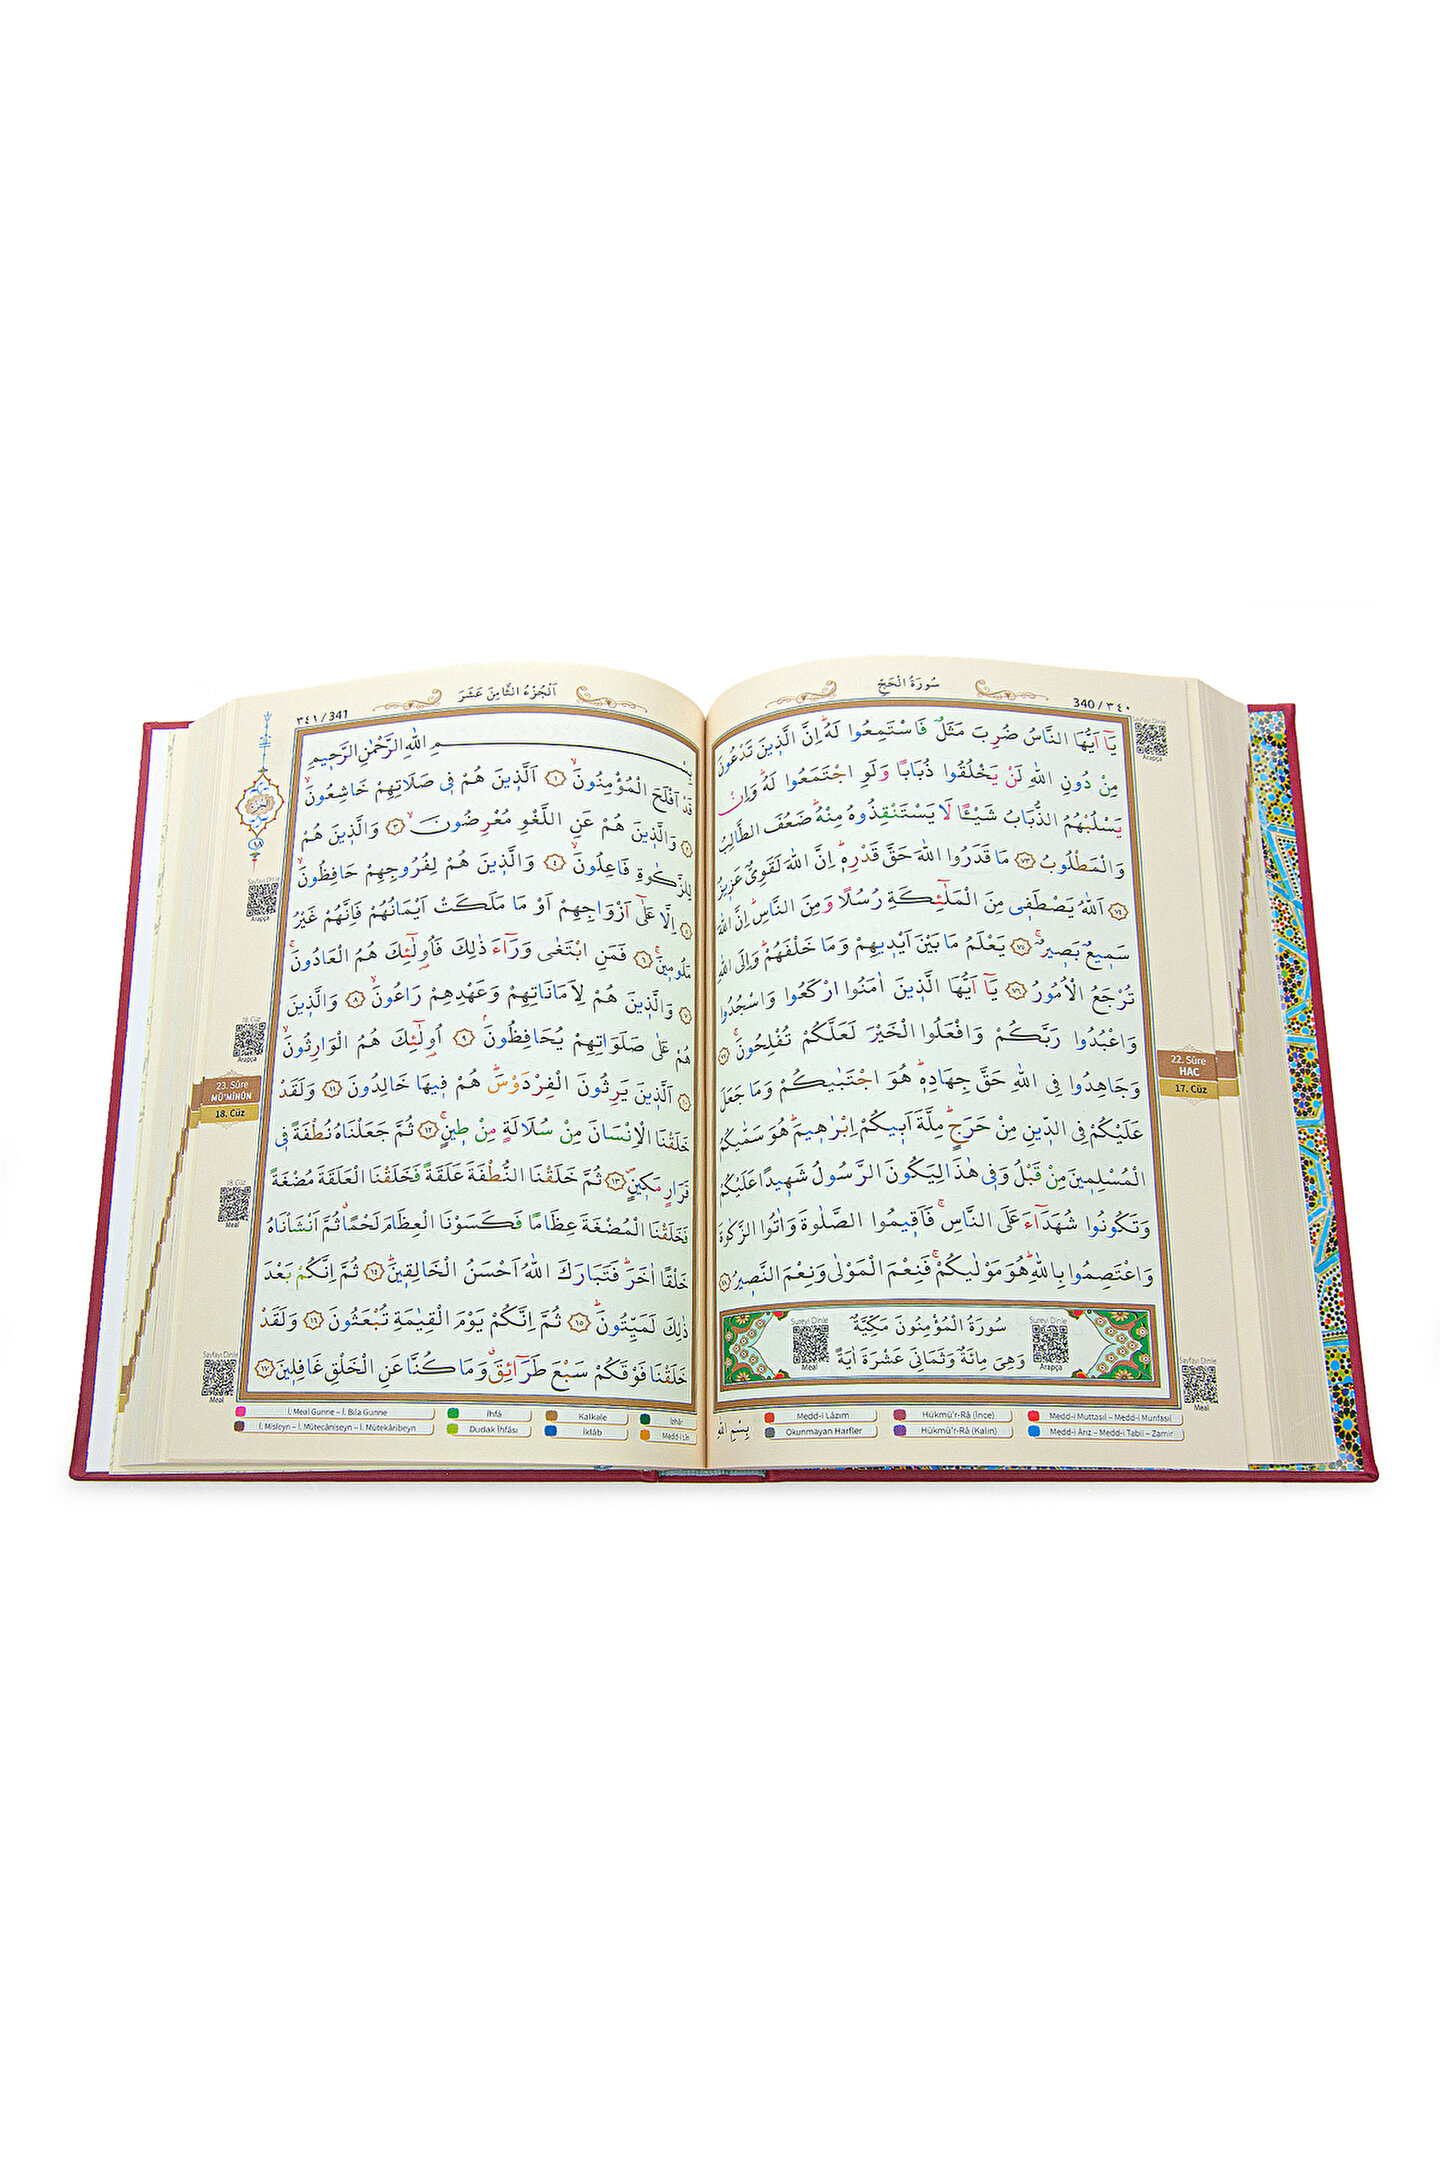 سُورَةُ الْحَجِّ
340 / ٣٤٠
يَٓا اَيُّهَا النَّاسُ ضُرِبَ مَثَلٌ فَاسْتَمِعُوا لَهُۜ اِنَّ الَّذ۪ينَ تَدْعُونَ
مِنْ دُونِ اللّٰهِ لَنْ يَخْلُقُوا ذُبَابًا وَلَوِ اجْتَمَعُوا لَهُۜ وَاِنْ
يَسْلُبْهُمُ الذُّبَابُ شَيْـًٔا لَا يَسْتَنْقِذُوهُ مِنْهُۜ ضَعُفَ الطَّالِبُ
وَالْمَطْلُوبُ ﴿٧٣﴾ مَا قَدَرُوا اللّٰهَ حَقَّ قَدْرِه۪ۜ اِنَّ اللّٰهَ لَقَوِيٌّ عَز۪يزٌ
﴿٧٤﴾ اَللّٰهُ يَصْطَف۪ي مِنَ الْمَلٰٓئِكَةِ رُسُلًا وَمِنَ النَّاسِۜ اِنَّ اللّٰهَ
سَم۪يعٌ بَص۪يرٌۚ ﴿٧٥﴾ يَعْلَمُ مَا بَيْنَ اَيْد۪يهِمْ وَمَا خَلْفَهُمْۜ وَاِلَى اللّٰهِ
تُرْجَعُ الْاُمُورُ ﴿٧٦﴾ يَٓا اَيُّهَا الَّذ۪ينَ اٰمَنُوا ارْكَعُوا وَاسْجُدُوا
وَاعْبُدُوا رَبَّكُمْ وَافْعَلُوا الْخَيْرَ لَعَلَّكُمْ تُفْلِحُونَۚ ﴿٧٧﴾
وَجَاهِدُوا فِي اللّٰهِ حَقَّ جِهَادِه۪ۜ هُوَ اجْتَبٰيكُمْ وَمَا جَعَلَ
عَلَيْكُمْ فِي الدّ۪ينِ مِنْ حَرَجٍۜ مِلَّةَ اَب۪يكُمْ اِبْرٰه۪يمَۜ هُوَ سَمّٰيكُمُ
الْمُسْلِم۪ينَ مِنْ قَبْلُ وَف۪ي هٰذَا لِيَكُونَ الرَّسُولُ شَه۪يدًا عَلَيْكُمْ
وَتَكُونُوا شُهَدَٓاءَ عَلَى النَّاسِۚ فَاَق۪يمُوا الصَّلٰوةَ وَاٰتُوا الزَّكٰوةَ
وَاعْتَصِمُوا بِاللّٰهِۜ هُوَ مَوْلٰيكُمْۚ فَنِعْمَ الْمَوْلٰى وَنِعْمَ النَّص۪يرُ ﴿٧٨﴾
سُورَةُ الْمُؤْمِنُونَ مَكِّيَّةٌ
وَهِيَ مِائَةٌ وَثَمَانِيَ عَشْرَةَ اٰيَةً
Sureyi Dinle
Meal
Sureyi Dinle
Arapça
Sayfayı Dinle
Arapça
22. Sûre
HAC
17. Cüz
Sayfayı Dinle
Meal
بِسْمِ اللّٰهِ
Medd-i Lâzım
Hükmü'r-Râ (İnce)
Medd-i Muttasıl – Medd-i Munfasıl
Okunmayan Harfler
Hükmü'r-Râ (Kalın)
Medd-i Ârız – Medd-i Tabiî – Zamir
اَلْجُزْءُ الثَّامِنَ عَشَرَ
٣٤١ / 341
بِسْمِ اللّٰهِ الرَّحْمٰنِ الرَّح۪يمِ
قَدْ اَفْلَحَ الْمُؤْمِنُونَۙ ﴿١﴾ اَلَّذ۪ينَ هُمْ ف۪ي صَلَاتِهِمْ خَاشِعُونَۙ
﴿٢﴾ وَالَّذ۪ينَ هُمْ عَنِ اللَّغْوِ مُعْرِضُونَۙ ﴿٣﴾ وَالَّذ۪ينَ هُمْ
لِلزَّكٰوةِ فَاعِلُونَۙ ﴿٤﴾ وَالَّذ۪ينَ هُمْ لِفُرُوجِهِمْ حَافِظُونَۙ
﴿٥﴾ اِلَّا عَلٰٓى اَزْوَاجِهِمْ اَوْ مَا مَلَكَتْ اَيْمَانُهُمْ فَاِنَّهُمْ غَيْرُ
مَلُوم۪ينَۚ ﴿٦﴾ فَمَنِ ابْتَغٰى وَرَٓاءَ ذٰلِكَ فَاُو۬لٰٓئِكَ هُمُ الْعَادُونَۚ
﴿٧﴾ وَالَّذ۪ينَ هُمْ لِاَمَانَاتِهِمْ وَعَهْدِهِمْ رَاعُونَۙ ﴿٨﴾ وَالَّذ۪ينَ
هُمْ عَلٰى صَلَوَاتِهِمْ يُحَافِظُونَۢ ﴿٩﴾ اُو۬لٰٓئِكَ هُمُ الْوَارِثُونَۙ
﴿١٠﴾ اَلَّذ۪ينَ يَرِثُونَ الْفِرْدَوْسَۜ هُمْ ف۪يهَا خَالِدُونَ ﴿١١﴾ وَلَقَدْ
خَلَقْنَا الْاِنْسَانَ مِنْ سُلَالَةٍ مِنْ ط۪ينٍۚ ﴿١٢﴾ ثُمَّ جَعَلْنَاهُ نُطْفَةً ف۪ي
قَرَارٍ مَك۪ينٍۖ ﴿١٣﴾ ثُمَّ خَلَقْنَا النُّطْفَةَ عَلَقَةً فَخَلَقْنَا الْعَلَقَةَ مُضْغَةً
فَخَلَقْنَا الْمُضْغَةَ عِظَامًا فَكَسَوْنَا الْعِظَامَ لَحْمًاۗ ثُمَّ اَنْشَأْنَاهُ
خَلْقًا اٰخَرَۜ فَتَبَارَكَ اللّٰهُ اَحْسَنُ الْخَالِق۪ينَۜ ﴿١٤﴾ ثُمَّ اِنَّكُمْ بَعْدَ
ذٰلِكَ لَمَيِّتُونَۜ ﴿١٥﴾ ثُمَّ اِنَّكُمْ يَوْمَ الْقِيٰمَةِ تُبْعَثُونَ ﴿١٦﴾ وَلَقَدْ
خَلَقْنَا فَوْقَكُمْ سَبْعَ طَرَٓائِقَۗ وَمَا كُنَّا عَنِ الْخَلْقِ غَافِل۪ينَ ﴿١٧﴾
Sayfayı Dinle
Arapça
18. Cüz
Arapça
23. Sûre
MÜ'MİNÛN
18. Cüz
18. Cüz
Meal
Sayfayı Dinle
Meal
İ. Meal Gunne – İ. Bila Gunne
İhfâ
Kalkale
İzhâr
İ. Misleyn – İ. Mütecâniseyn – İ. Mütekâribeyn
Dudak İhfâsı
İklâb
Medd-i Lîn